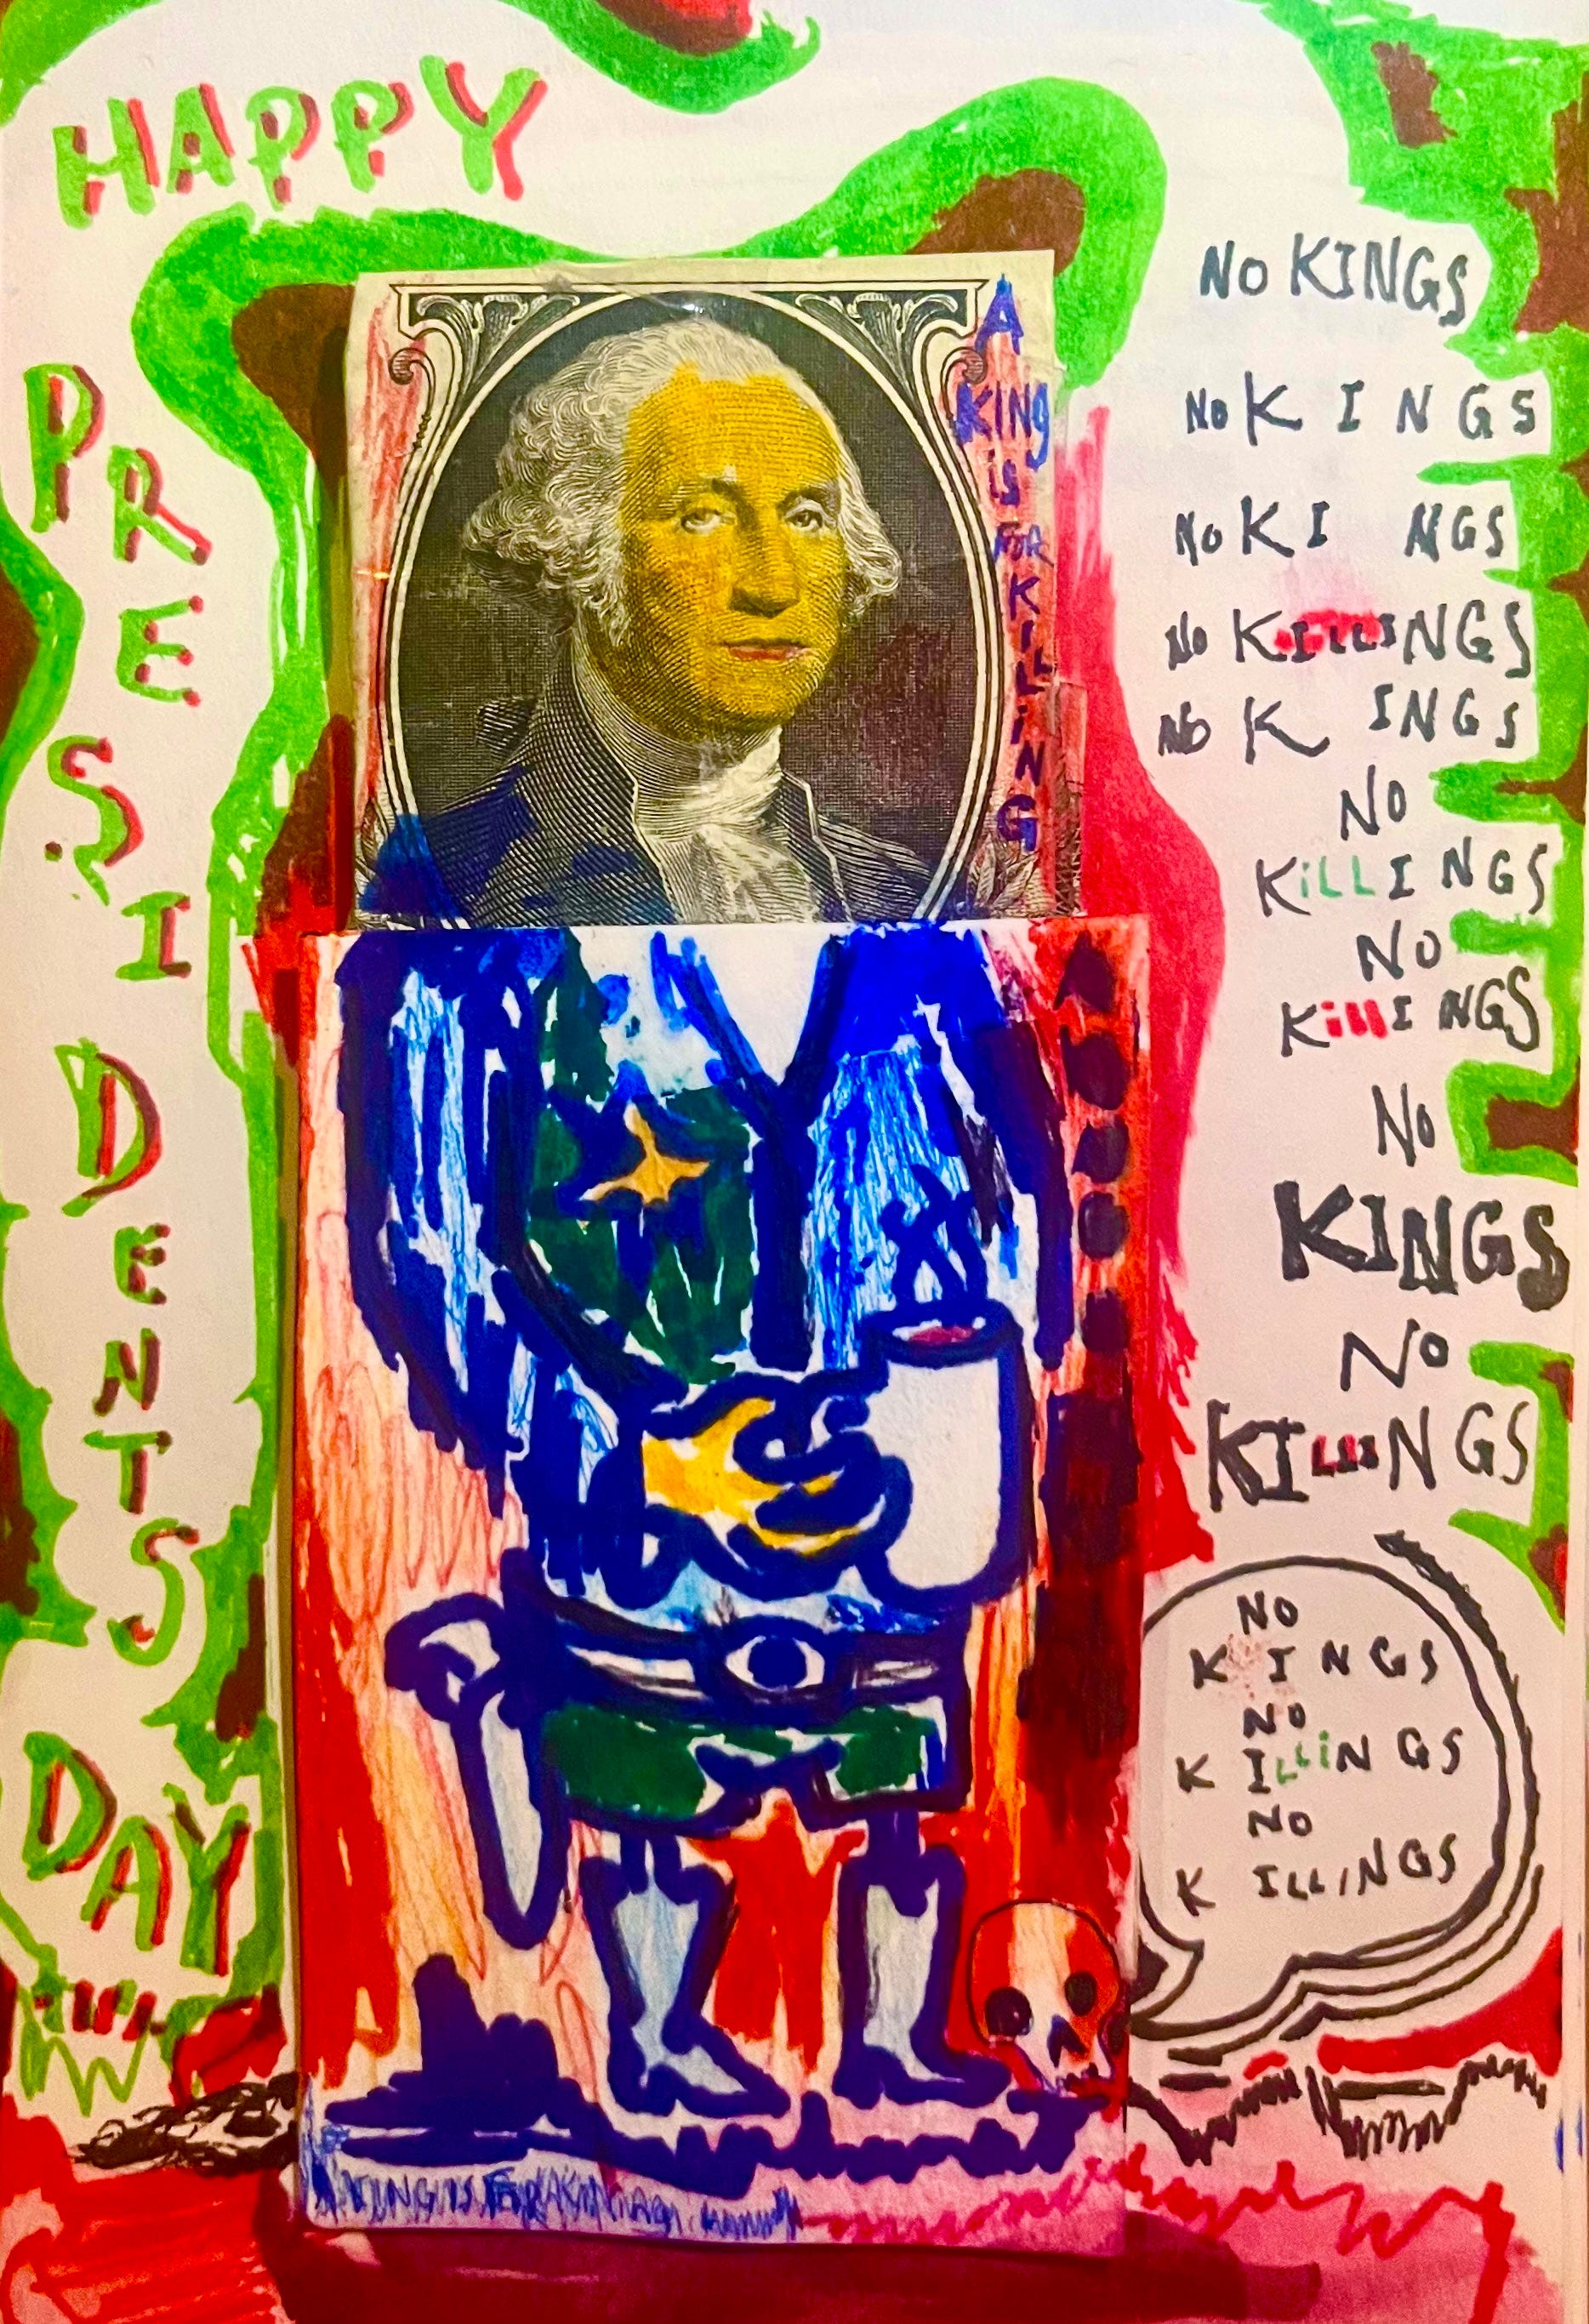 HAPPY
PRESIDENTS
DAY
A
KING
iS
FOR
KiLLiNG
NO KINGS
NO K I N G S
NO K I NGS
NO KILLINGS
NO K INGS
NO
KiLLINGS
NO
KillINGS
NO
KINGS
NO
KILLINGS
NO
K INGS
NO
K ILLiNGS
NO
K ILLINGS